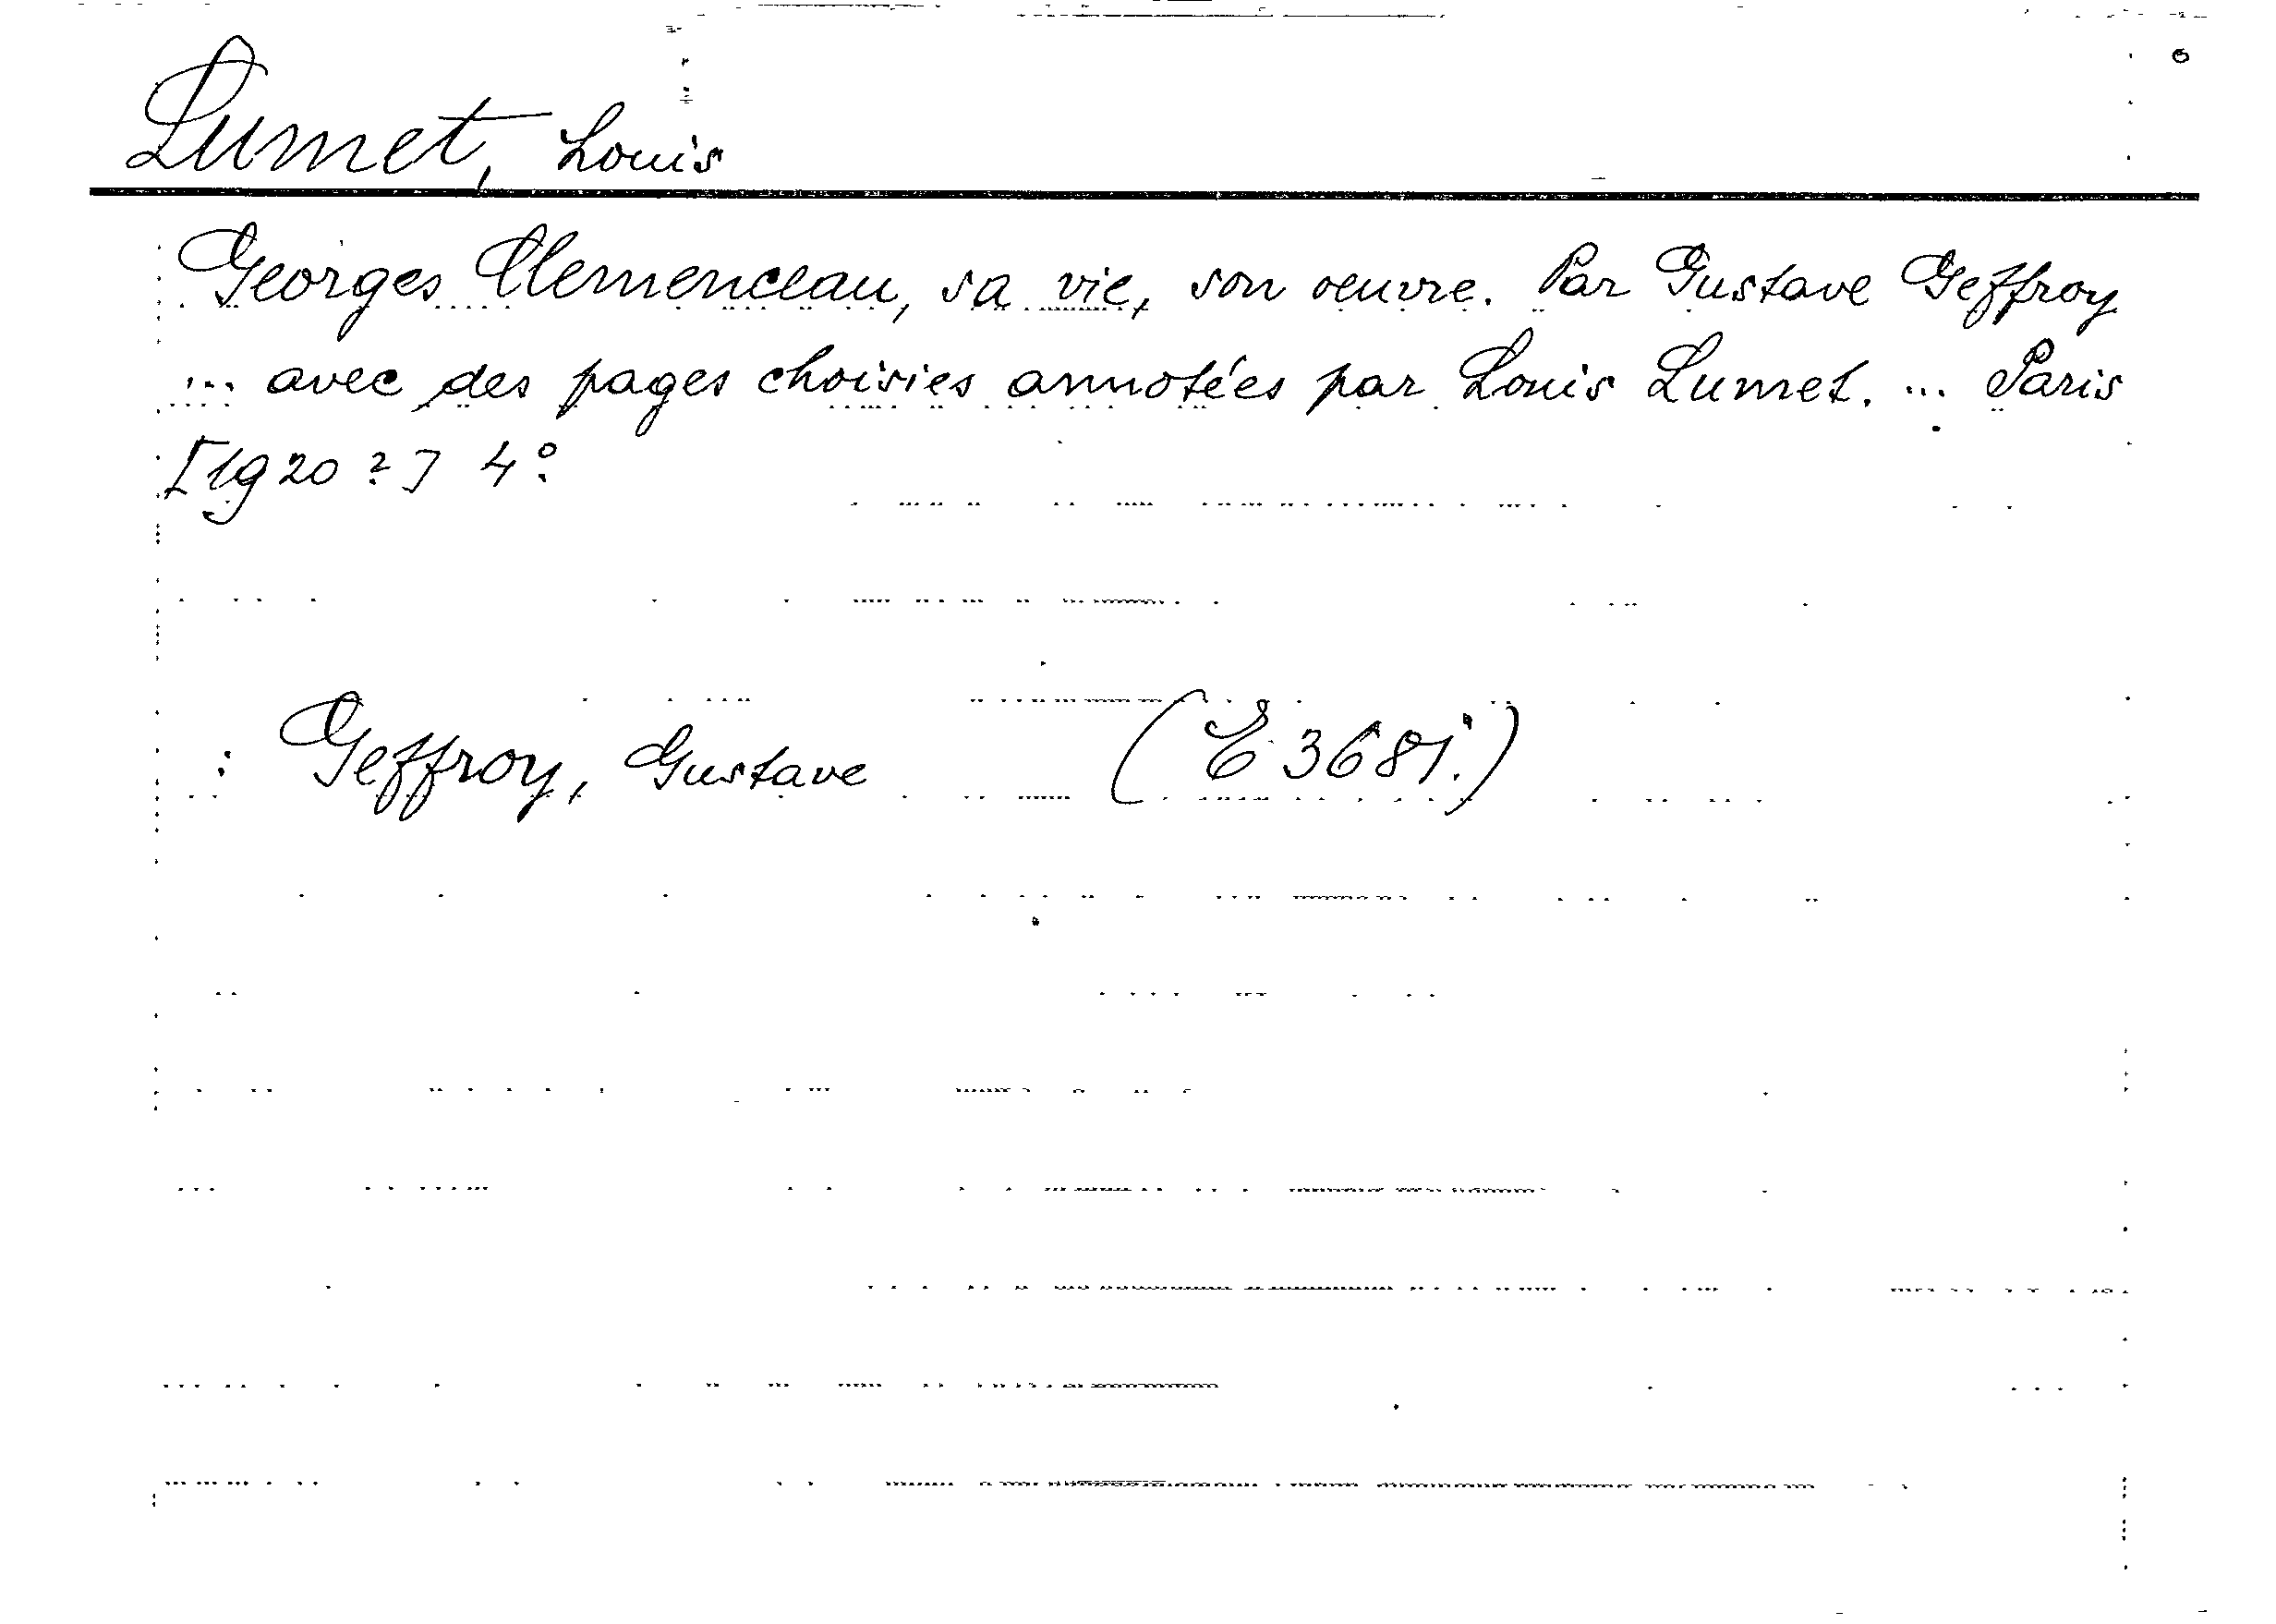 Lumet, Louis
Georges Clemenceau, sa vie, son oeuvre. Par Gustave Geffroy
... avec des pages choisies annotées par Louis Lumet. ... Paris
[1920?] 4º
: Geffroy, Gustave (E 368i.)